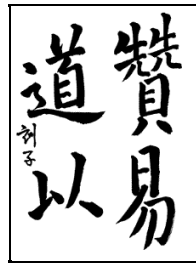 贊易
道以
刻子